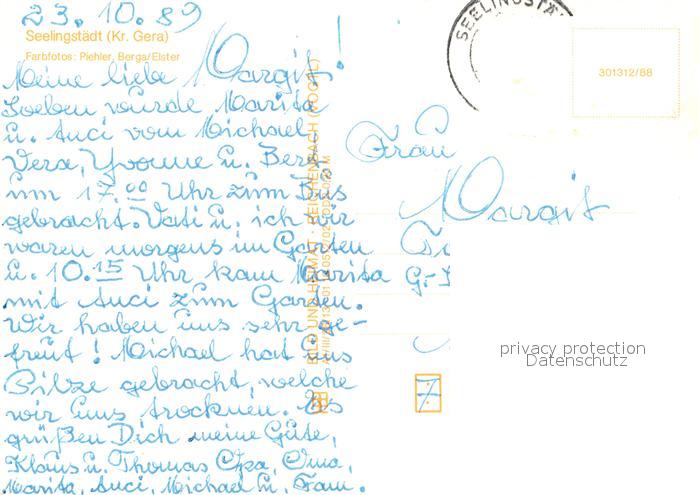 23.10.89
Seelingstädt (Kr. Gera)
Farbfotos: Piehler, Berga/Elster
Meine liebe Margit!
Soeben wurde Marita
u. Anci vom Michael,
Vera, Yvonne u. Bert
um 17.00 Uhr zum Bus
gebracht. Vati u. ich wir
waren morgens im Garten
u. 10.15 Uhr kam Marita
mit Anci zum Garten.
Wir haben uns sehr ge-
freut! Michael hat uns
Pilze gebracht, welche
wir uns trocknen. Es
grüßen Dich meine Gute,
Klaus u. Thomas Opa, Oma,
Marita, Anci, Michael u. Fam.
BILD UND HEIMAT · REICHENBACH (VOGTL)
SEELINGSTÄ
301312/88
Frau
Margit
7
privacy protection
Datenschutz